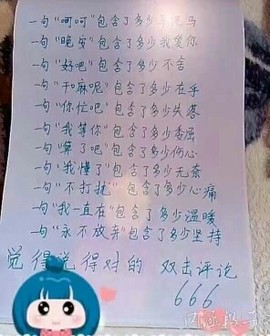 一句"呵呵"包含了多少草尼马
一句"晚安"包含了多少我爱你
一句"好吧"包含了多少不舍
一句"干麻呢"包含了多少在乎
一句"你忙吧"包含了多少失落
一句"我等你"包含了多少委屈
一句"算了吧"包含了多少伤心
一句"我懂了"包含了多少无奈
一句"不打扰"包含了多少心痛
一句"我一直在"包含了多少温暖
一句"永不放弃"包含了多少坚持
觉得说得对的 双击评论
666